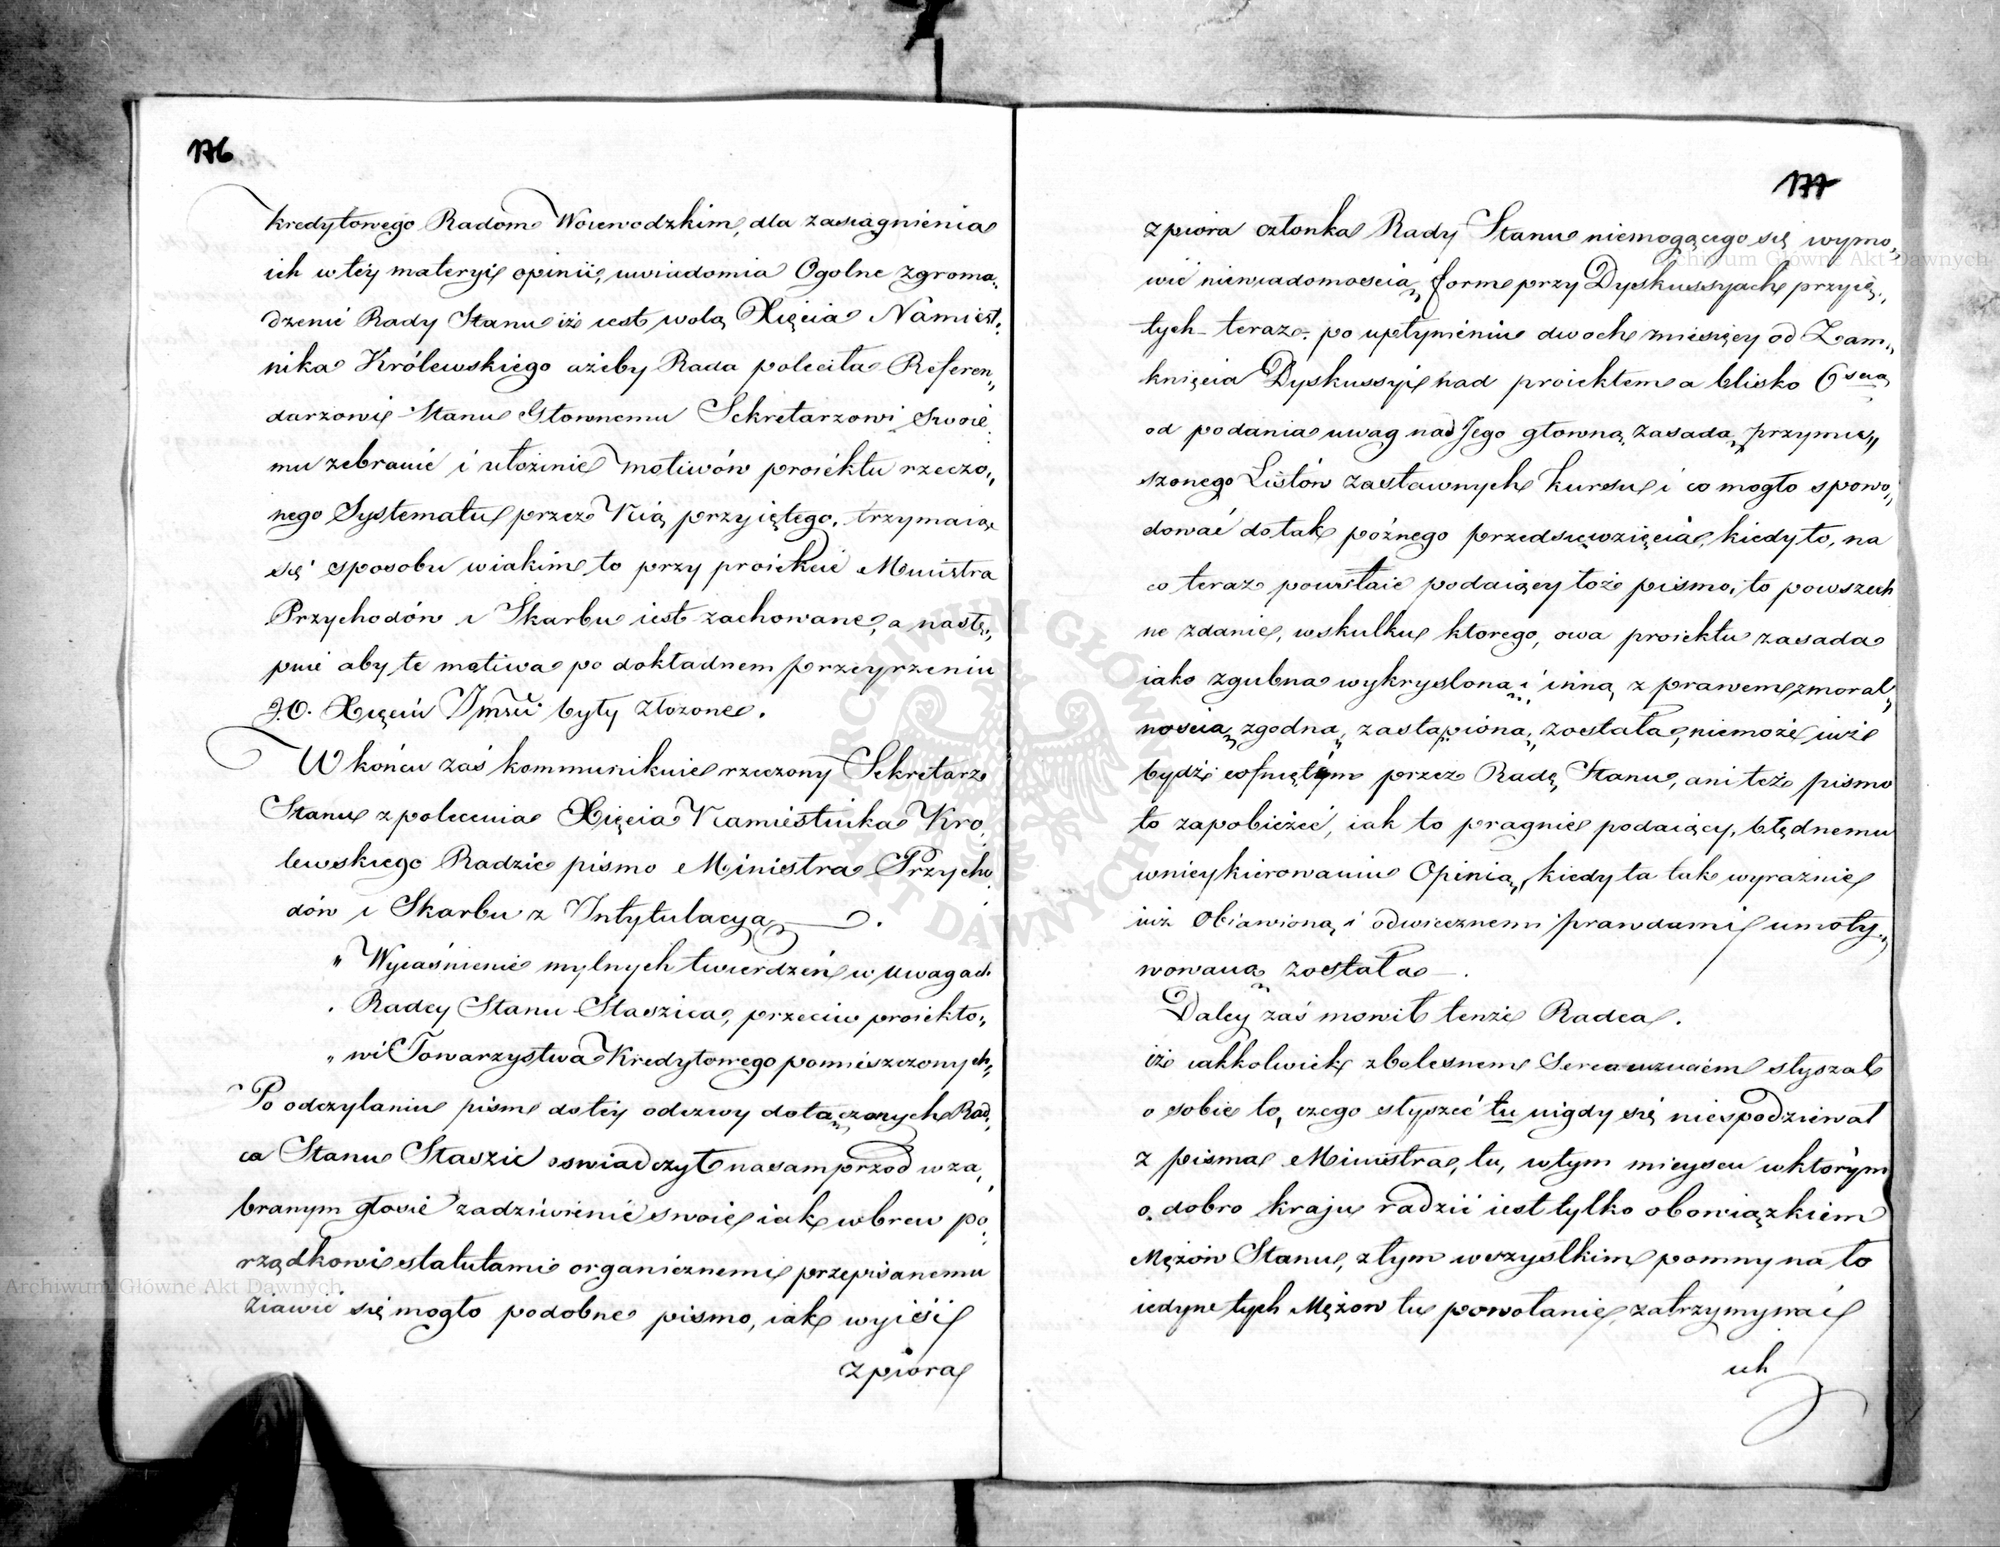 176
kredytowego Radom Woiewodzkim, dla zasiągnienia
ich w téy materyi opinii, uwiadomia Ogolne Zgroma„
dzenie Rady Stanu iż iest wolą Xięcia Namiest„
nika Królewskiego ażeby Rada poleciła Referen„
darzowi Stanu Głownemu Sekretarzowi Swoie„
mu zebranie i ułożenie motiwów proiektu rzeczo„
nego Systematu przez Nią przyiętego, trzymaiąc
się sposobu w iakim to przy proiekcie Ministra
Przychodów i Skarbu iest zachowane, a nastę„
pnie aby te motiwa po dokładnem przeyrzeniu
J.O. Xięciu Jmści były złożone.
W końcu zaś kommunikuie rzeczony Sekretarz
Stanu z polecenia Xięcia Namiestnika Kro„
lewskiego Radzie pismo Ministra Przycho„
dów i Skarbu z Intytulacyą.
„ Wyiaśnienie mylnych twierdzeń w uwagach
„ Radcy Stanu Staszica, przeciw proiekto„
„ wi Towarzystwa Kredytowego pomieszczonych„
Po odczytaniu pism do téy odezwy dołączonych Rad„
ca Stanu Staszic oswiadczył nasamprzod w za„
branym głosie zadziwienie swoie iak wbrew po„
rządkowi statutami organicznemi przepisanemu
ziawić się mogło podobne pismo, iak wyiść
z piora
177
z piora członka Rady Stanu niemogącego się wymo„
wić niewiadomoscią form przy Dyskussyach przyię„
tych teraz po upłynieniu dwoch miesięcy od Zam„
knięcia Dyskussyi nad proiektem a blisko 6ściu
od podania uwag nad Jego głowną zasadą, przymu„
szonego Listów Zastawnych kursu, i co mogło spowo„
dować do tak póżnego przedsięwzięcia, kiedy to, na
co teraz powstaie podaiący toż pismo, to powszech
ne zdanie, wskutku ktorego, owa proiektu zasada
iako zgubna wykryslona, i inną z prawem z moral„
noscią zgodną, zastąpioną, została, niemoże iuż
bydź cofniętym przez Radę Stanu, ani też pismo
to zapobieżeć, iak to pragnie podaiący, błędnemu
w niey kierowaniu Opinią, kiedy ta tak wyraźnie
iuż obiawioną i odwiecznemi prawdami umoty„
wowaną została.
Daley zaś mowił tenże Radca.
iż iakkolwiek z bolesnem Serca uczuciem słyszał
o sobie to, czego słyszeć tu nigdy się niespodziewał
z pisma Ministra, tu, w tym mieyscu w którym
o dobro kraju radzić iest tylko obowiązkiem
Mężów Stanu, z tym wszystkim pomny na to
iedyne tych Mężow tu powołanie, zatrzymywać
ich